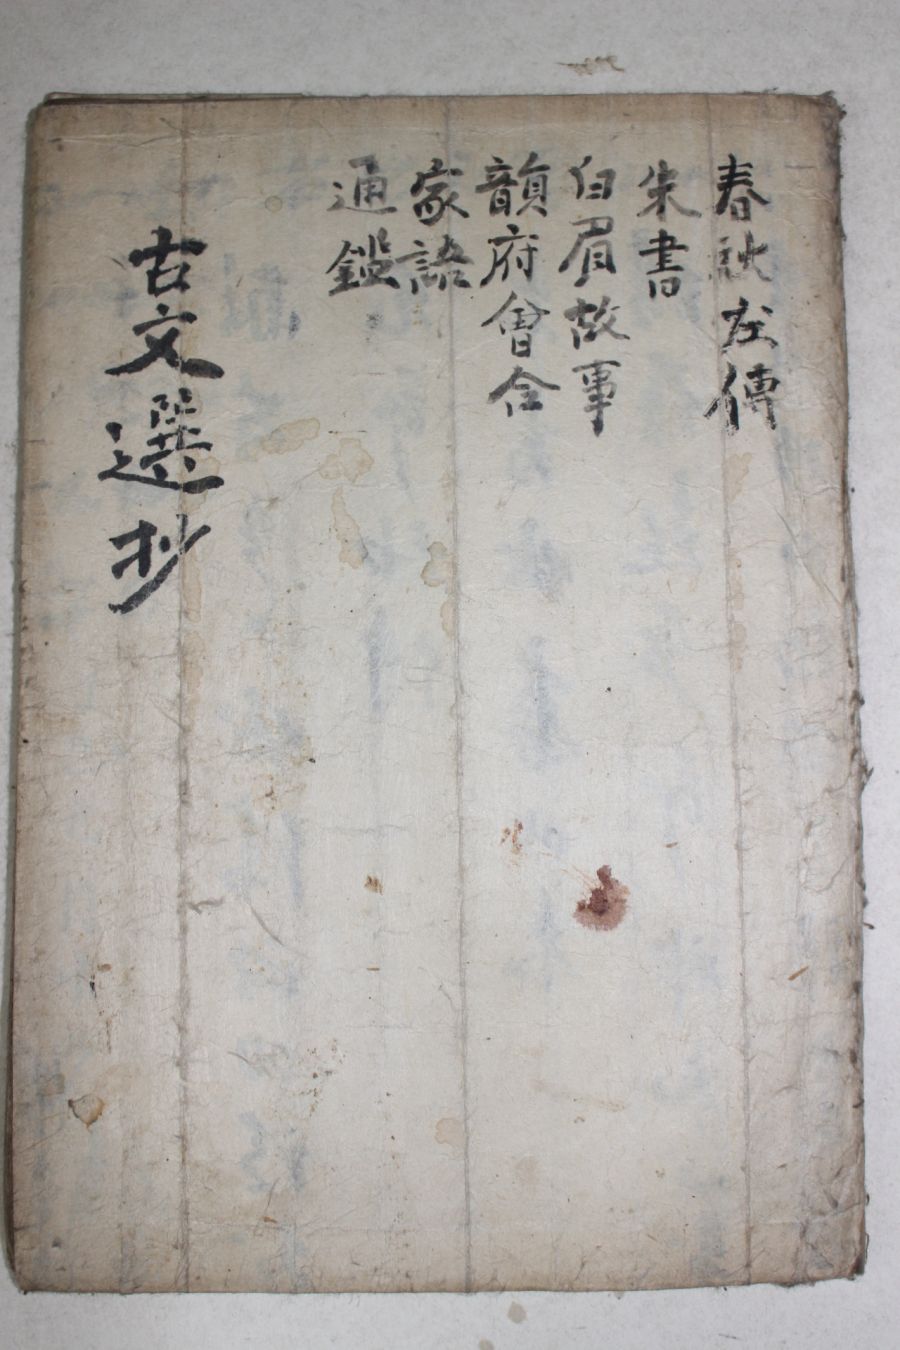 春秋左傳
朱書
白眉故事
韻府會仝
家語
通鑑
古文選抄